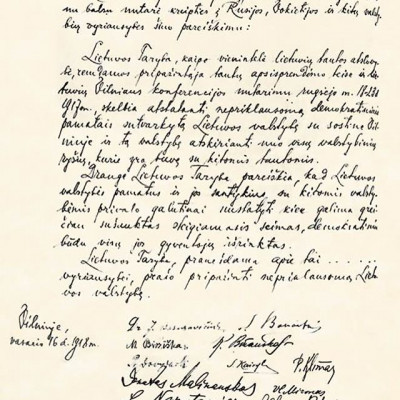 niu balsu nutarė kreiptis į Rusijos, Vokietijos ir kitų valsty-
bių vyriausybes šiuo pareiškimu:
Lietuvos Taryba, kaipo vienintelė lietuvių tautos atstovy-
bė, remdamos pripažintąja tautų apsisprendimo teise ir Lie-
tuvių Vilniaus konferencijos nutarimu rugsėjo m. 18-23 d.
1917 m., skelbia atstatanti nepriklausomą, demokratiniais
pamatais sutvarkytą Lietuvos valstybę su sostine Vil-
niuje ir tą valstybę atskirianti nuo visų valstybinių
ryšių, kurie yra buvę su kitomis tautomis.
Drauge Lietuvos Taryba pareiškia, kad Lietuvos
valstybės pamatus ir jos santykius su kitomis valsty-
bėmis privalo galutinai nustatyti kiek galima grei-
čiau sušauktas steigiamasis seimas, demokratiniu
būdu visų jos gyventojų išrinktas.
Lietuvos Taryba, pranešdama apie tai . . . . . .
vyriausybei, prašo pripažinti nepriklausomą Lietu-
vos valstybę.
Vilniuje,
vasario 16 d. 1918 m.
Dr. J. Basanavičius S. Banaitis
M. Biržiška K. Bizauskas
Pr. Dovydaitis S. Kairys P. Klimas
Donatas Malinauskas Vl. Mironas